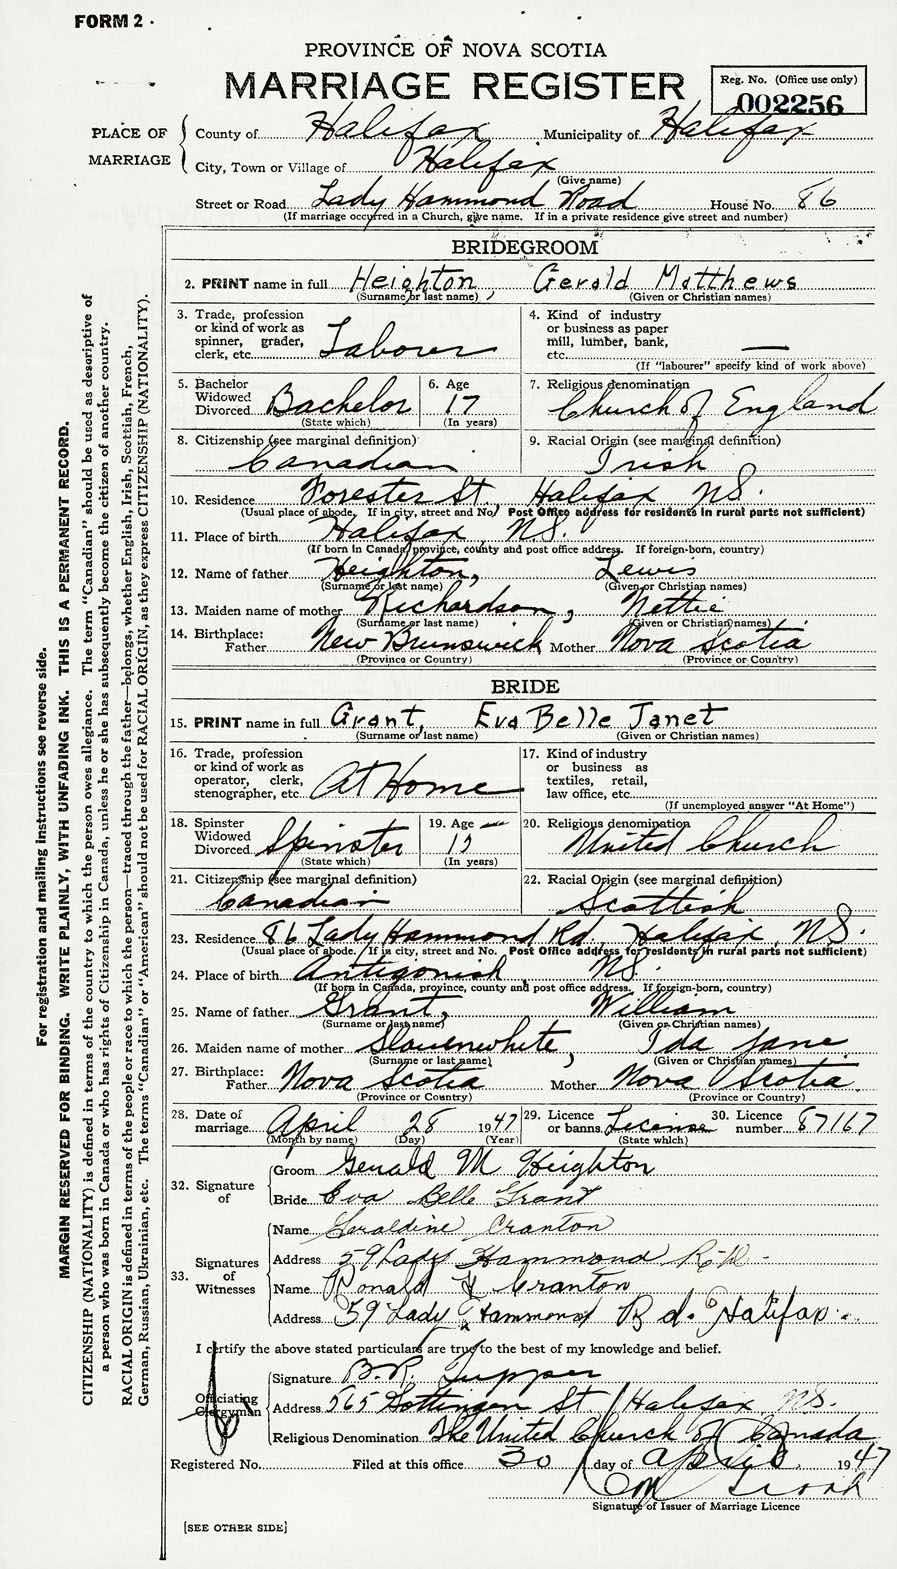 FORM 2
PROVINCE OF NOVA SCOTIA
MARRIAGE REGISTER
Reg. No. (Office use only)
002256
PLACE OF MARRIAGE
County of Halifax Municipality of Halifax
City, Town or Village of Halifax
(Give name)
Street or Road Lady Hammond Road House No. 86
(If marriage occurred in a Church, give name. If in a private residence give street and number)
BRIDEGROOM
2. PRINT name in full Heighton, Gerald Matthews
(Surname or last name) (Given or Christian names)
3. Trade, profession or kind of work as spinner, grader, clerk, etc. Laborer
4. Kind of industry or business as paper mill, lumber, bank, etc. —
(If "labourer" specify kind of work above)
5. Bachelor Widowed Divorced Bachelor
(State which)
6. Age 17
(In years)
7. Religious denomination
Church of England
8. Citizenship (see marginal definition)
Canadian
9. Racial Origin (see marginal definition)
Irish
10. Residence Forester St. Halifax NS.
(Usual place of abode. If in city, street and No. Post Office address for residents in rural parts not sufficient)
11. Place of birth Halifax, NS.
(If born in Canada, province, county and post office address. If foreign-born, country)
12. Name of father Heighton, Lewis
(Surname or last name) (Given or Christian names)
13. Maiden name of mother Richardson, Nettie
(Surname or last name) (Given or Christian names)
14. Birthplace: Father New Brunswick Mother Nova Scotia
(Province or Country) (Province or Country)
BRIDE
15. PRINT name in full Grant, Eva Belle Janet
(Surname or last name) (Given or Christian names)
16. Trade, profession or kind of work as operator, clerk, stenographer, etc. At Home
17. Kind of industry or business as textiles, retail, law office, etc.
(If unemployed answer "At Home")
18. Spinster Widowed Divorced Spinster
(State which)
19. Age
(In years)
20. Religious denomination
United Church
21. Citizenship (see marginal definition)
Canadian
22. Racial Origin (see marginal definition)
Scottish
23. Residence 86 Lady Hammond Rd, Halifax, NS.
(Usual place of abode. If in city, street and No. Post Office address for residents in rural parts not sufficient)
24. Place of birth Antigonish, NS.
(If born in Canada, province, county and post office address. If foreign-born, country)
25. Name of father Grant, William
(Surname or last name) (Given or Christian names)
26. Maiden name of mother Slauenwhite, Ida Jane
(Surname or last name) (Given or Christian names)
27. Birthplace: Father Nova Scotia Mother Nova Scotia
(Province or Country) (Province or Country)
28. Date of marriage April 28 1947
(Month by name) (Day) (Year)
29. Licence or banns License
(State which)
30. Licence number 87167
32. Signature of
Groom Gerald M Heighton
Bride Eva Belle Grant
33. Signatures of Witnesses
Name Geraldine Cranton
Address 59 Lady Hammond Rd
Name Donald Cranton
Address 59 Lady Hammond Rd. Halifax
I certify the above stated particulars are true to the best of my knowledge and belief.
Officiating Clergyman
Signature B.R. Tupper
Address 565 Gottingen St, Halifax, NS.
Religious Denomination The United Church of Canada
Registered No. Filed at this office 30 day of April 1947
Signature of Issuer of Marriage Licence
[SEE OTHER SIDE]
For registration and mailing instructions see reverse side.
MARGIN RESERVED FOR BINDING. WRITE PLAINLY, WITH UNFADING INK. THIS IS A PERMANENT RECORD.
CITIZENSHIP (NATIONALITY) is defined in terms of the country to which the person owes allegiance. The term "Canadian" should be used as descriptive of
a person who was born in Canada or who has rights of Citizenship in Canada, unless he or she has subsequently become the citizen of another country.
RACIAL ORIGIN is defined in terms of the people or race to which the person—traced through the father—belongs, whether English, Irish, Scottish, French,
German, Russian, Ukrainian, etc. The terms "Canadian" or "American" should not be used for RACIAL ORIGIN, as they express CITIZENSHIP (NATIONALITY).